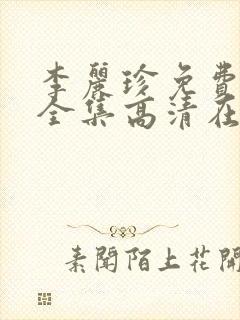 李麗珍免費
全集高清在
素聞陌上花開